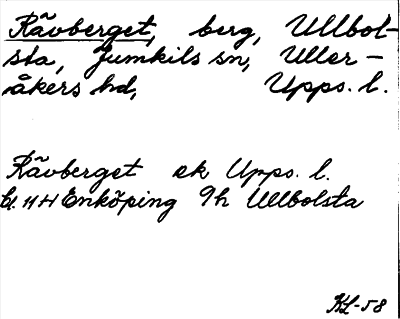 Rävberget, berg, Ullbol-
sta, Jumkils sn, Uller-
åkers hd, Upps. l.
Rävberget ek Upps. l.
bl. 11H Enköping 9h Ullbolsta
KL-58